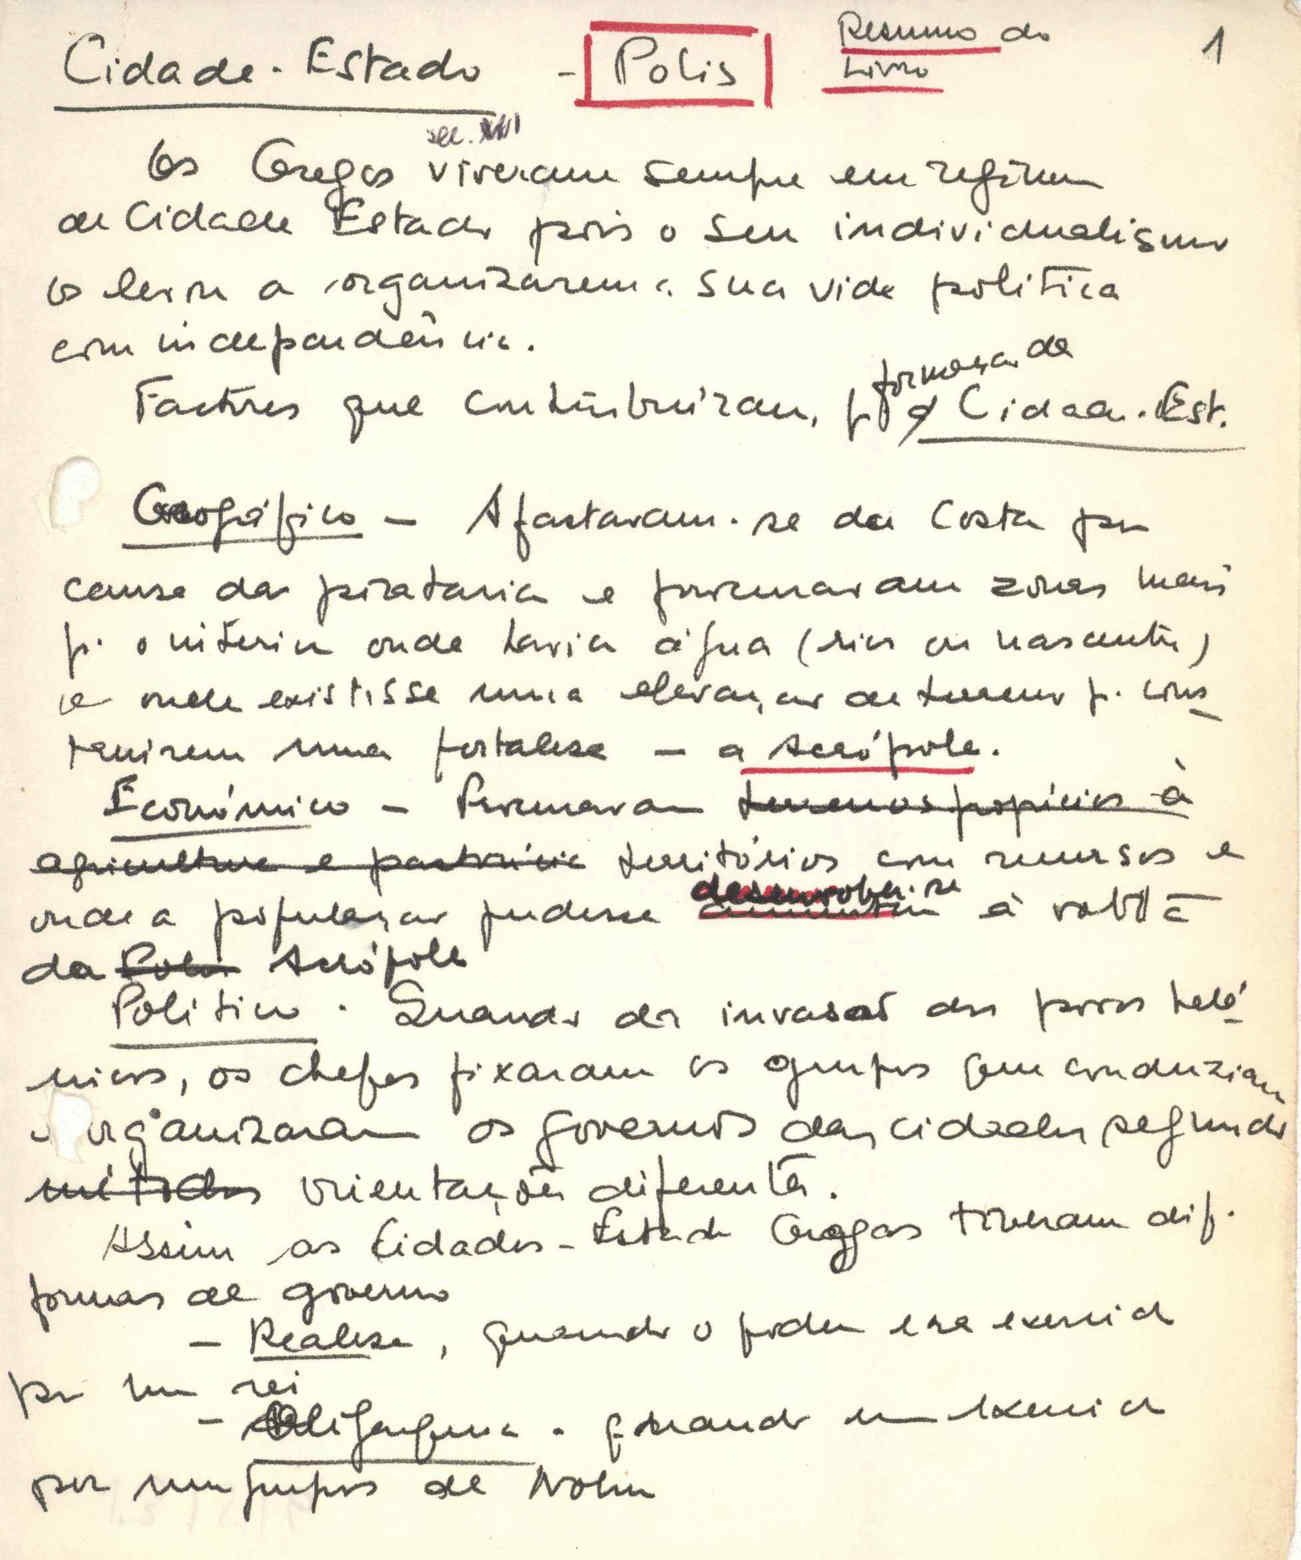 Cidade-Estado - Polis
Resumo do
Livro
1
sec.
Os Gregos viveram sempre em regímen
de Cidade Estado pois o seu individualismo
os levou a organizarem a sua vida política
com independência.
formação da
Factores que contribuiram, p. a Cidade-Est.
Geográfico - Afastaram-se da Costa por
causa da pirataria e procuraram zonas mais
p. o interior onde havia água (rios ou nascente)
e onde existisse uma elevação de terreno p. cons-
truirem uma fortaleza - a Acrópole.
Económico - Procuraram terrenos propícios à
agricultura e pastorícia territórios com recursos e
desenvolver-se
onde a população pudesse aumentar à volta
da Polis Acrópole
Político - Quando da invasão dos povos helé-
nicos, os chefes fixaram os grupos que conduziam
e organizaram os governos das cidades segundo
métodos orientações diferentes.
Assim as Cidades-Estado Gregas tiveram dif.
formas de governo
- Realeza, quando o poder era exercido
por um rei
- Oligarquia - quando era exercido
por um grupos de Nobres